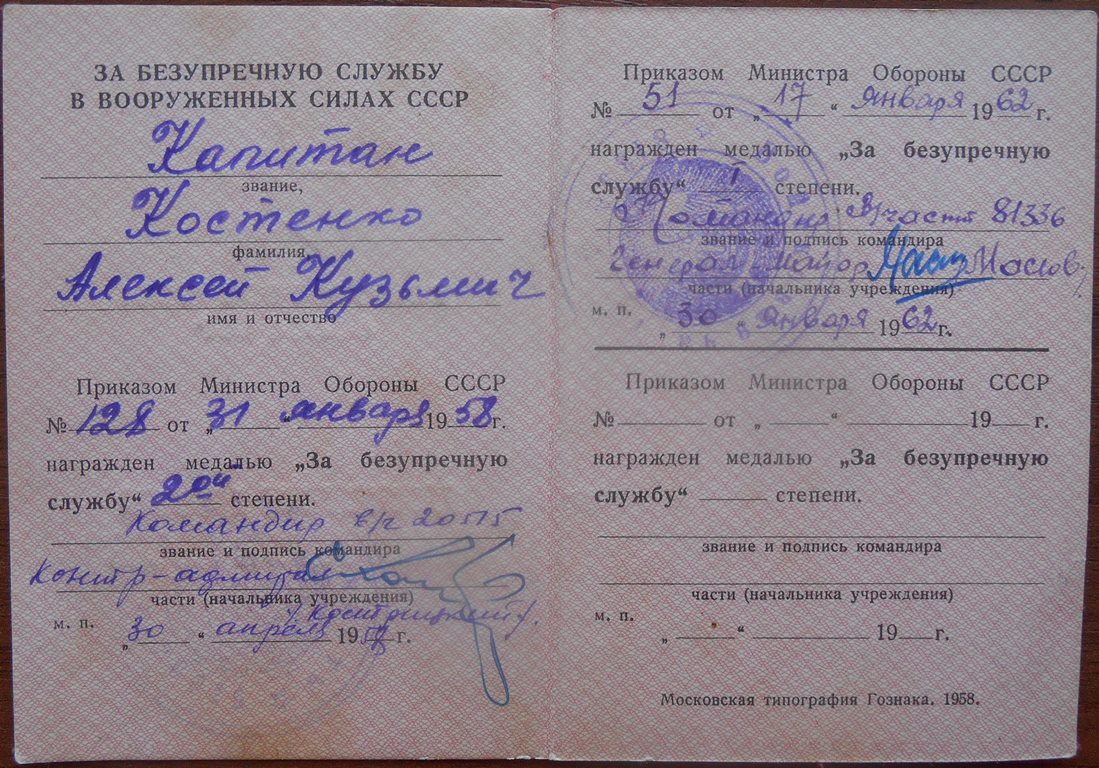 ЗА БЕЗУПРЕЧНУЮ СЛУЖБУ
В ВООРУЖЕННЫХ СИЛАХ СССР
Капитан
звание,
Костенко
фамилия,
Алексей Кузьмич
имя и отчество
Приказом Министра Обороны СССР
№ 128 от „31 " января 1958 г.
награжден медалью „За безупречную
службу“ 2ой степени.
Командир в/ч 20515
звание и подпись командира
Контр-адмирал
части (начальника учреждения)
м. п.
„30 “ апреля 1958 г.
Приказом Министра Обороны СССР
№ 51 от „17 “ января 1962 г.
награжден медалью „За безупречную
службу“ I степени.
Командир в/части 81336
звание и подпись командира
Генерал-майор Маслов
части (начальника учреждения)
м. п.
„30 января 1962 г.
Приказом Министра Обороны СССР
№ от „ “ 19 г.
награжден медалью „За безупречную
службу“ степени.
звание и подпись командира
части (начальника учреждения)
м. п.
„ “ 19 г.
Московская типография Гознака. 1958.